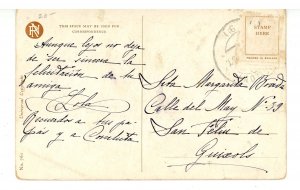 THIS SPACE MAY BE USED FOR
CORRESPONDENCE
Aunque lejos no deja
de ser sincera la
felicitacion de tu
amiga
Lola
Recuerdos a tus pa-
pás y a Conchita
Srta Margarita
Calle del May Nº 39
San Feliu de
Guixols
STAMP
HERE
No. 761